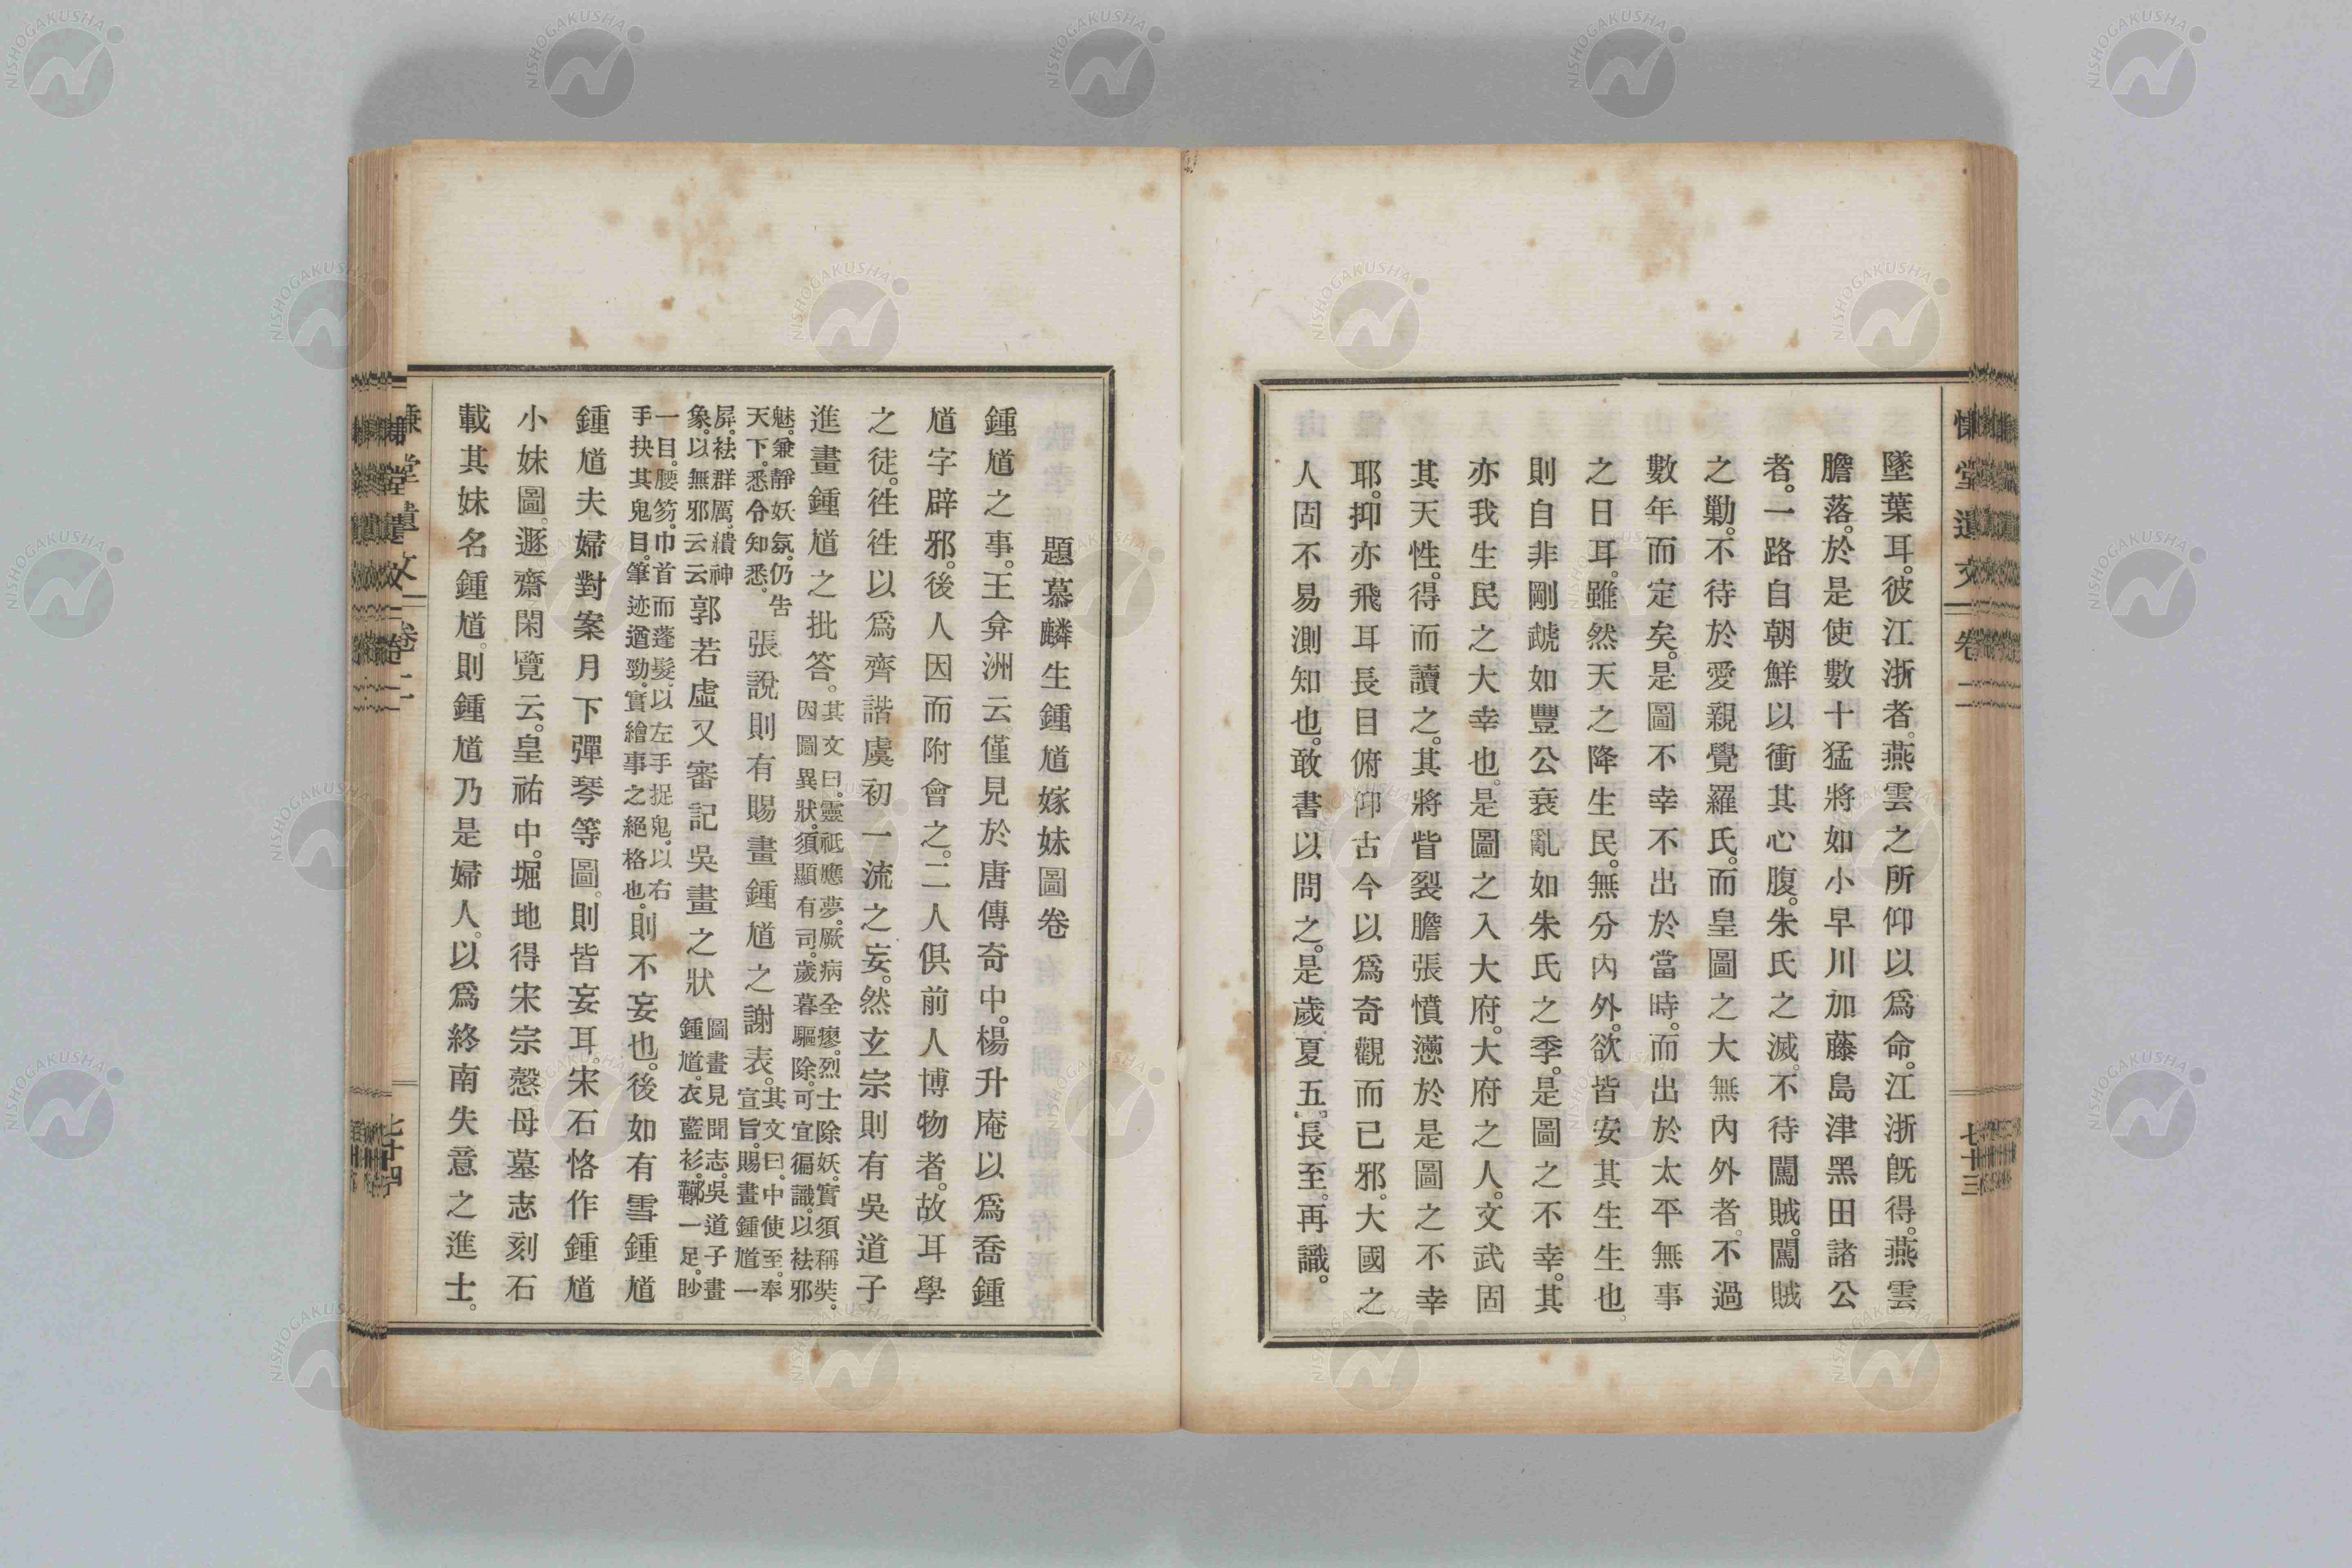 慊堂遺文 卷二 七十三
墜葉耳。彼江浙者。燕雲之所仰以爲命。江浙既得。燕雲
膽落。於是使數十猛將如小早川加藤島津黑田諸公
者。一路自朝鮮以衝其心腹。朱氏之滅。不待闖賊。闖賊
之勦。不待於愛親覺羅氏。而皇圖之大無內外者。不過
數年而定矣。是圖不幸不出於當時。而出於太平無事
之日耳。雖然天之降生民。無分內外。欲皆安其生生也。
則自非剛虣如豐公衰亂如朱氏之季。是圖之不幸。其
亦我生民之大幸也。是圖之入大府。大府之人。文武固
其天性。得而讀之。其將眥裂膽張憤懣於是圖之不幸
耶。抑亦飛耳長目俯仰古今以爲奇觀而已邪。大國之
人固不易測知也。敢書以問之。是歲夏五。長至。再識。
題慕麟生鍾馗嫁妹圖卷
鍾馗之事。王弇洲云。僅見於唐傳奇中。楊升庵以爲喬鍾
馗字辟邪。後人因而附會之。二人俱前人博物者。故耳學
之徒。徃徃以爲齊諧虞初一流之妄。然玄宗則有吳道子
進畫鍾馗之批答。其文曰。靈祇應夢。厥病全瘳。烈士除妖。實須稱奘。因圖異狀。須顯有司。歲暮驅除。可宜徧識。以袪邪
魅。兼靜妖氛。仍告天下。悉令知悉。張說則有賜畫鍾馗之謝表。其文曰。中使至。奉宣旨。賜畫鍾馗一
屏。袪群厲。繢神象。以無邪云云郭若虛又審記吳畫之狀圖畫見聞志。吳道子畫鍾馗。衣藍衫。鞹一足。眇
一目。腰笏。巾首而蓬髮。以左手捉鬼。以右手抉其鬼目。筆迹遒勁。實繪事之絕格也。則不妄也。後如有雪鍾馗
鍾馗夫婦對案月下彈琴等圖。則皆妄耳。宋石恪作鍾馗
小妹圖。遯齋閑覽云。皇祐中。堀地得宋宗慤母墓志刻石
載其妹名鍾馗。則鍾馗乃是婦人。以爲終南失意之進士。
慊堂遺文 卷二 七十四